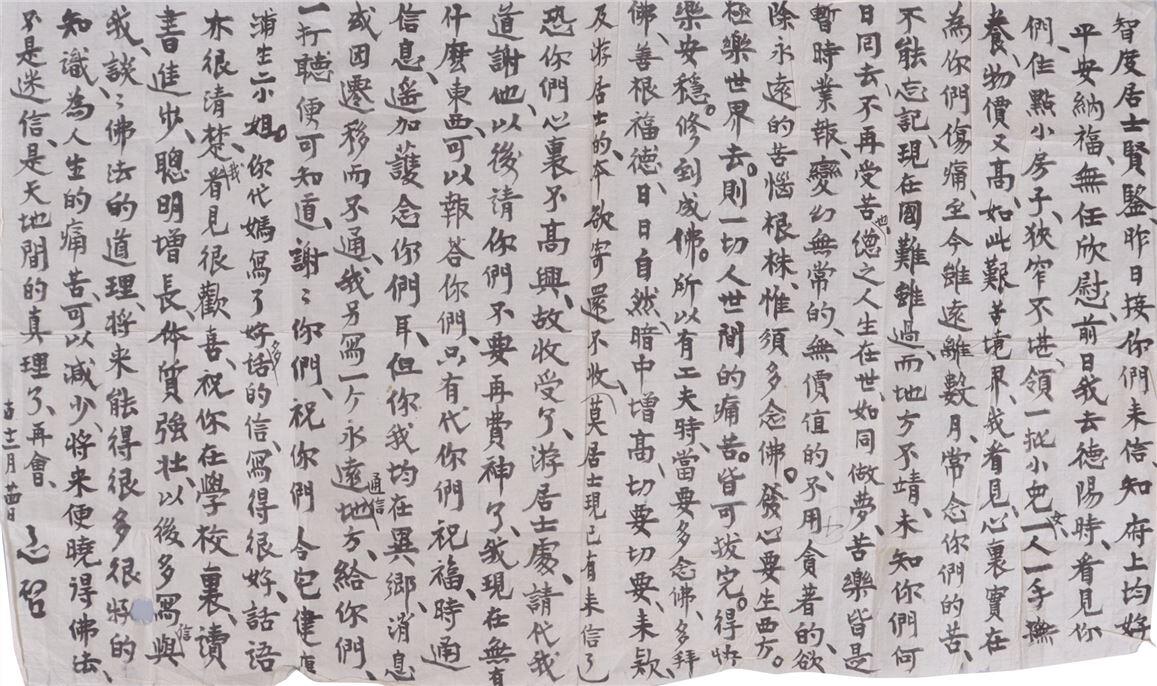 智度居士賢鑒昨日接你們来信、知府上均好
平安納福、無任欣慰、前日我去德陽時、看見你
們住點小房子、狹窄不堪、領一批小兒女一人一手撫
養、物價又高、如此艱苦境界、我看見、心裏實在
為你們傷痛、至今雖遠離數月、常念你們的苦、
不能忘記、現在國難雖過、而地方不靖、未知你們何
日回去、不再受苦也、德之人生在世如同做夢、苦樂皆是
暫時業報、變幻無常的、無價值的、不用貪著的、欲
除永遠的苦惱根株、惟須多念佛。發心要生西方。
極樂世界去。則一切人世間的痛苦。皆可拔完。得快
樂安穩。修到成佛。所以有工夫時、當要多念佛、多拜
佛、善根福德、日日自然、暗中增高、切要切要、来款
及游居士的本欲寄還不收、（莫居士現已有来信了
恐你們心裏不高興、故收受了、游居士處、請代我
道謝他、以後請你們不要再費神了、我現在無有
什麼東西、可以報答你們、只有代你們祝福、時通
信息、遙加護念你們耳、但你我均在異鄉、消息
或因遷移而不通、我另寫一个永遠通信地方、給你們、
一打聽、便可知道、謝謝你們、祝你們 合宅健康
蒲生二小姐。你代媽寫了好多話的信、寫得很好、話語
亦很清楚、我看見很歡喜、祝你在學校裏、讀
書進步、聰明增長、体質強壯、以後多寫信與
我、談談佛法的道理、将来能得很多很好的
知識、為人生的痛苦、可以減少、将来便曉得佛法、
不是迷信、是天地間的真理了、再會、